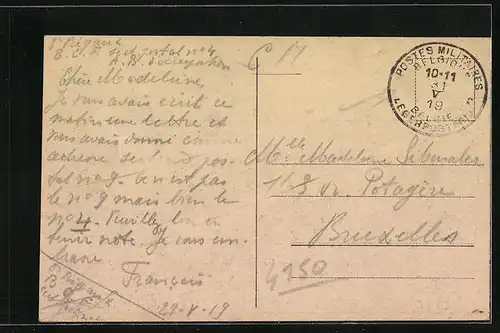 B.C.K. sect postal no 4
A.B. d'occupation
Chère Madeleine,
Je vous avais écrit ce
matin une lettre et
vous avais donné comme
adresse sect pos-
tal no 9. Ce n'est pas
le no 9 mais bien le
no 4. Veuillez bien en
tenir note. Je vous em-
brasse
François
29-V-19
C M
POSTES MILITAIRES
BELGIQUE
10-11
31
V
19
BELGIE
LEGERPOSTERIJ
Mlle Madeleine
113 r. Potagère
Bruxelles
4150